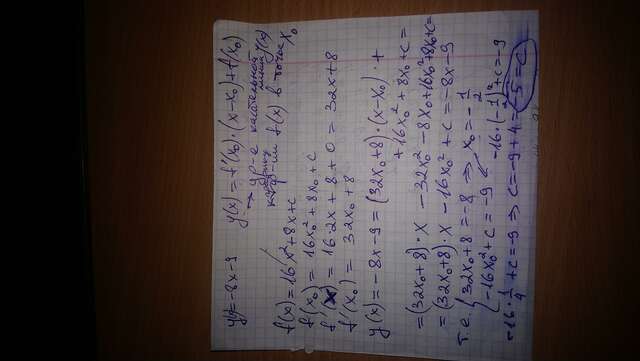 y = -8x-9 y(x) = f'(x₀)·(x-x₀)+f(x₀)
→ ур-е касательной
линии y(x)
к
ф-ии f(x) в точке x₀
f(x) = 16x²+8x+c
f(x₀) = 16x₀²+8x₀+c
f'(x) = 16·2x+8+0 = 32x+8
f'(x₀) = 32x₀+8
y(x) = -8x-9 = (32x₀+8)·(x-x₀)+
+16x₀²+8x₀+c =
= (32x₀+8)·x -32x₀²-8x₀+16x₀²+8x₀+c =
= (32x₀+8)·x -16x₀²+c = -8x-9
т.е. { 32x₀+8 = -8 ⇒ x₀ = -1/2
-16x₀²+c = -9 -16·(-1/2)²+c = -9
-16·1/4+c = -9 ⇒ c = -9+4 = -5 = c